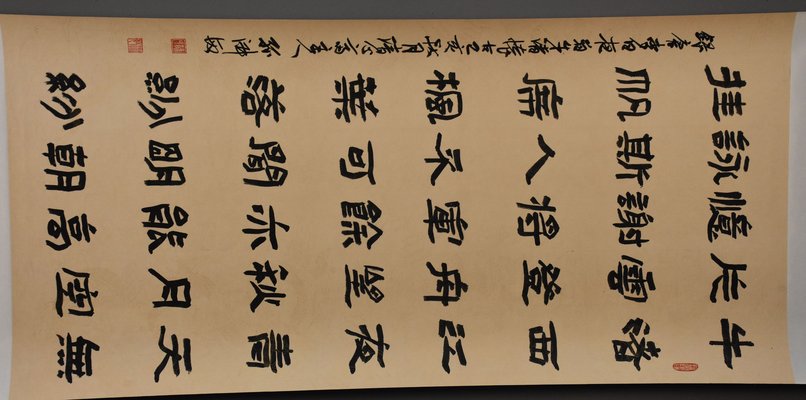 牛渚西江夜青天無
片雲登舟望秋月空
憶謝將軍餘亦能高
詠斯人不可聞明朝
挂帆席楓葉落紛紛
錄唐李白夜泊牛渚懷古己亥秋月 主人孫